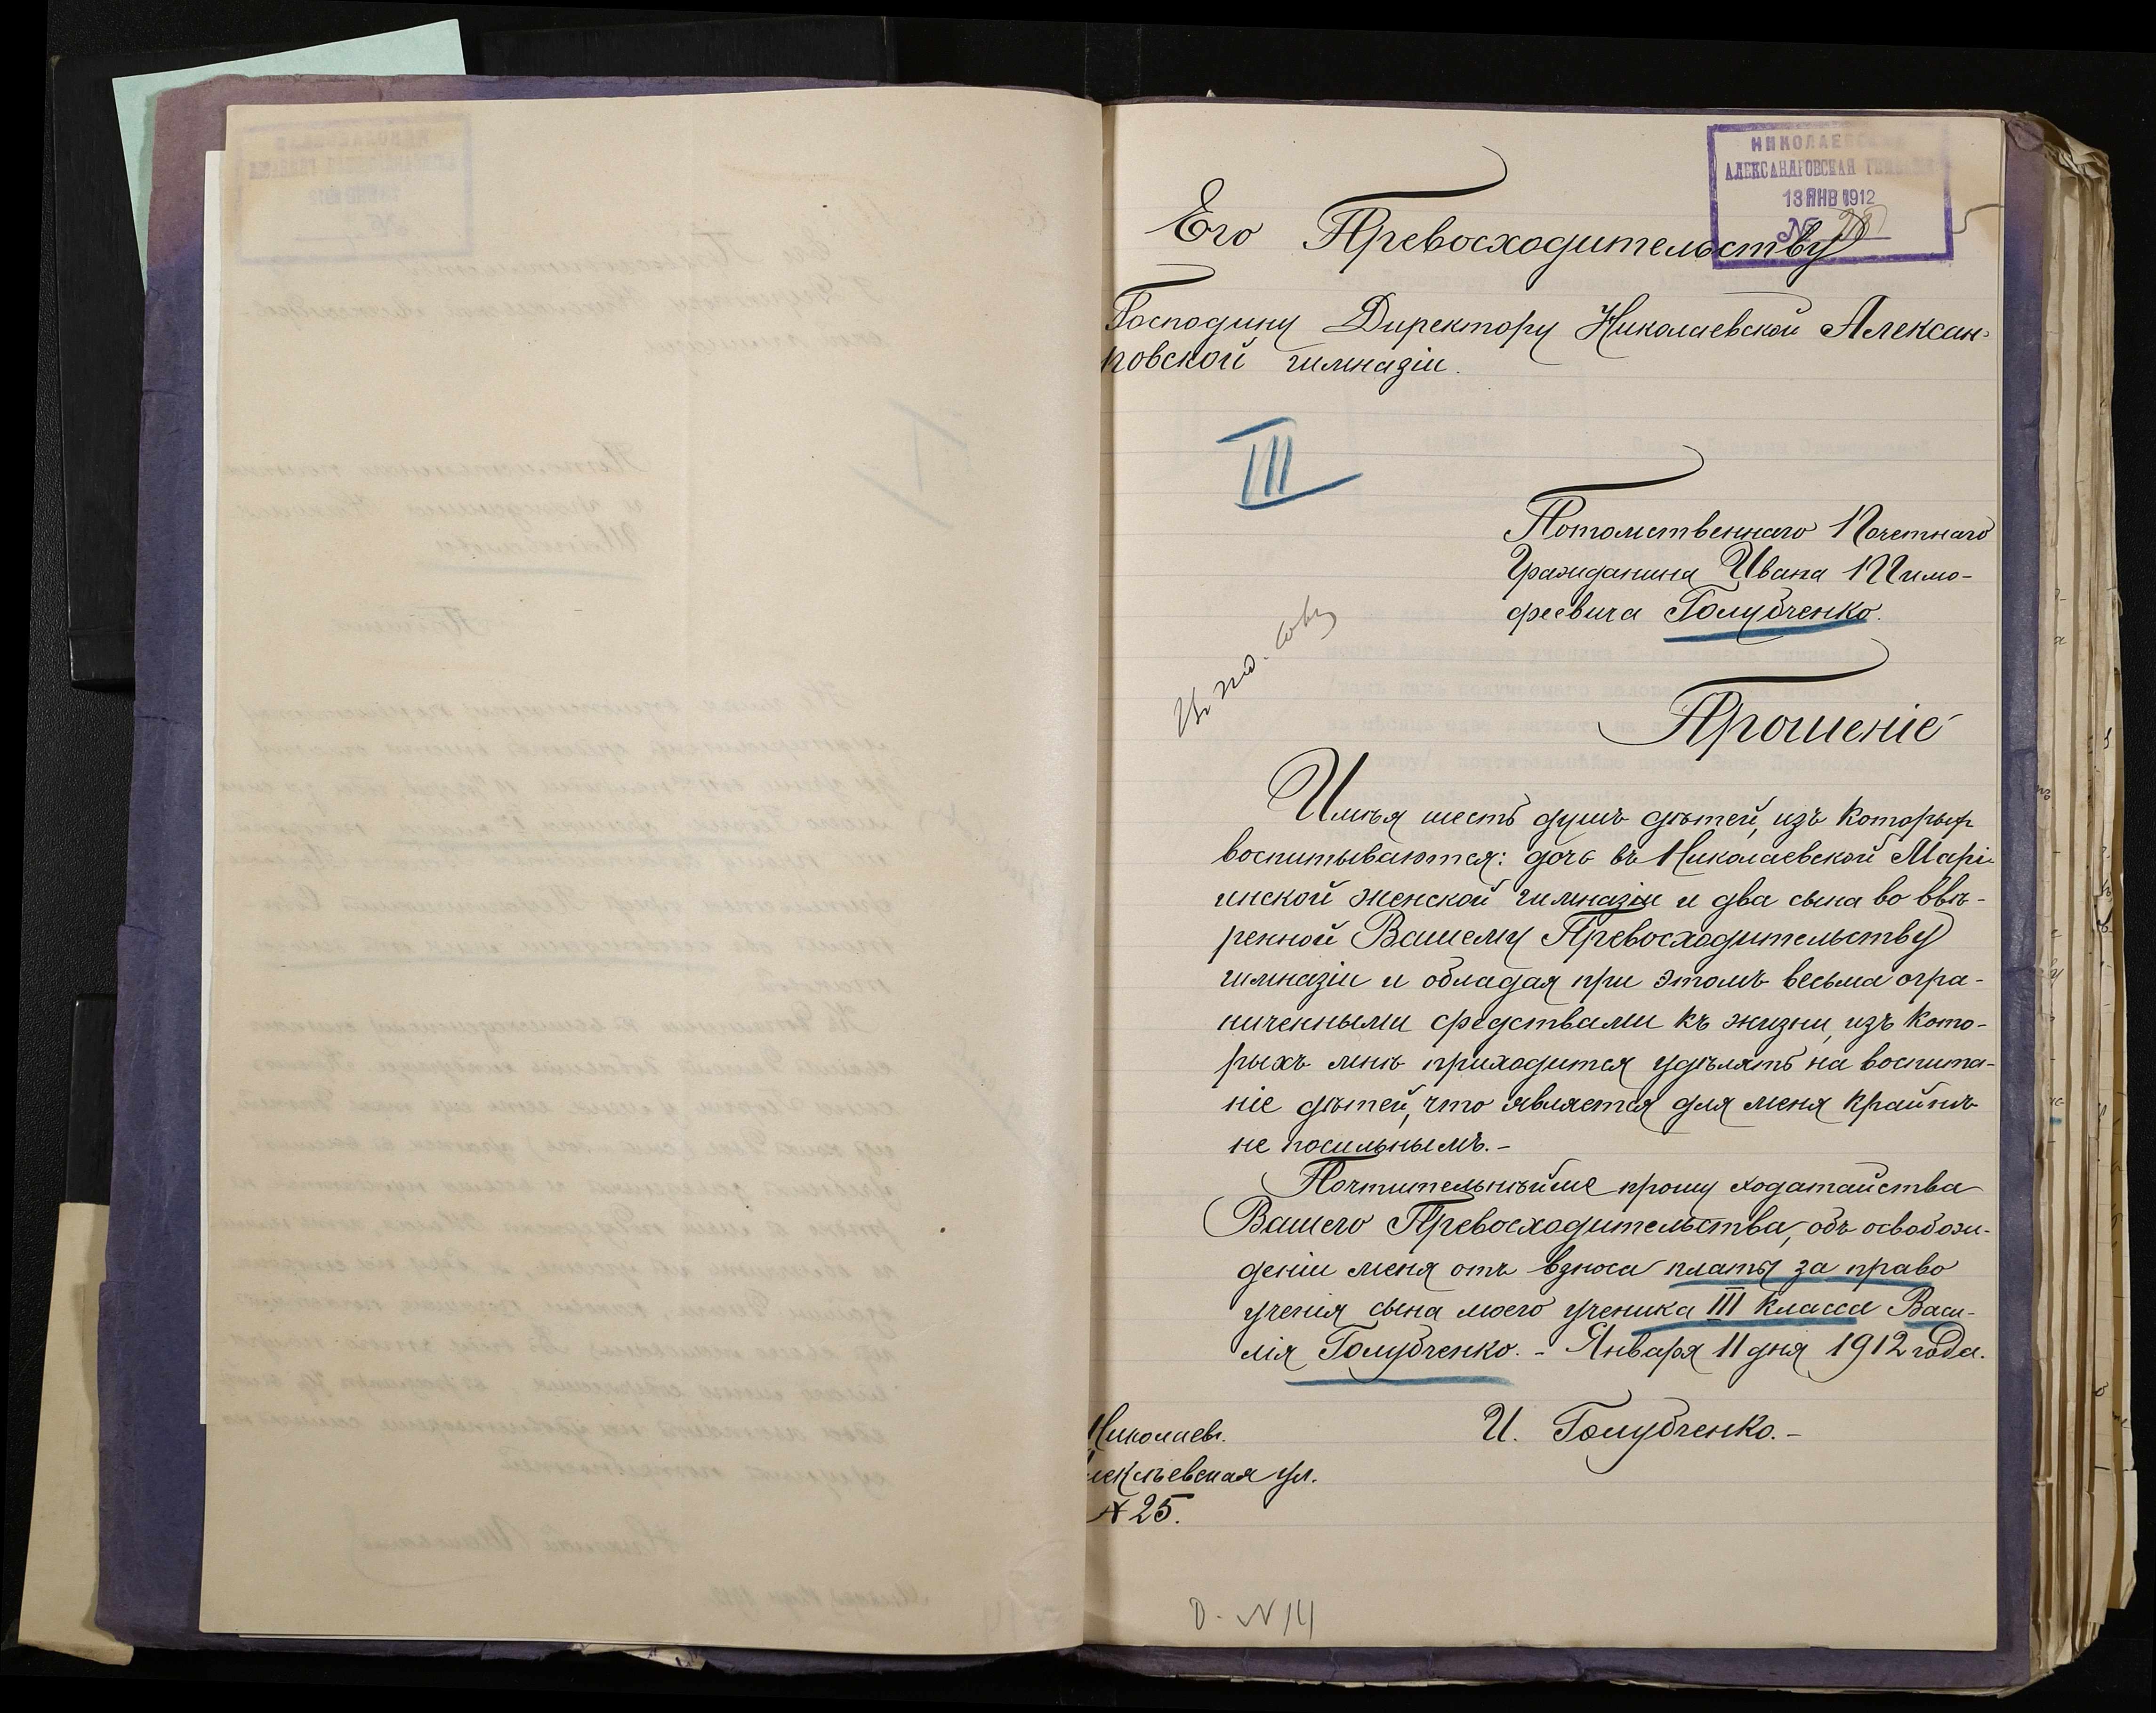 НИКОЛАЕВСКАЯ
АЛЕКСАНДРОВСКАЯ ГИМНАЗІЯ
13 ЯНВ 1912
№
Его Превосходительству
Господину Директору Николаевской Алексан-
ровской гимназіи.
III
Потомственнаго Почетнаго
Гражданина Ивана Тимо-
феевича Голубченко.
Прошеніе
Имѣя шесть душъ дѣтей, изъ которыхъ
воспитываются: дочь въ Николаевской Марі-
инской женской гимназіи и два сына во ввѣ-
ренной Вашему Превосходительству
гимназіи и обладая при этомъ весьма огра-
ниченными средствами къ жизни, изъ кото-
рыхъ мнѣ приходится удѣлять на воспита-
ніе дѣтей, что является для меня крайнѣ
не посильнымъ.-
Почтительнѣйше прошу ходатайства
Вашего Превосходительства, объ освобож-
деніи меня отъ взноса платы за право
ученія сына моего ученика III класса Васи-
лія Голубченко. - Января 11 дня 1912 года.
И. Голубченко.-
Николаевъ.
ул.
№ 25.
О. № 14